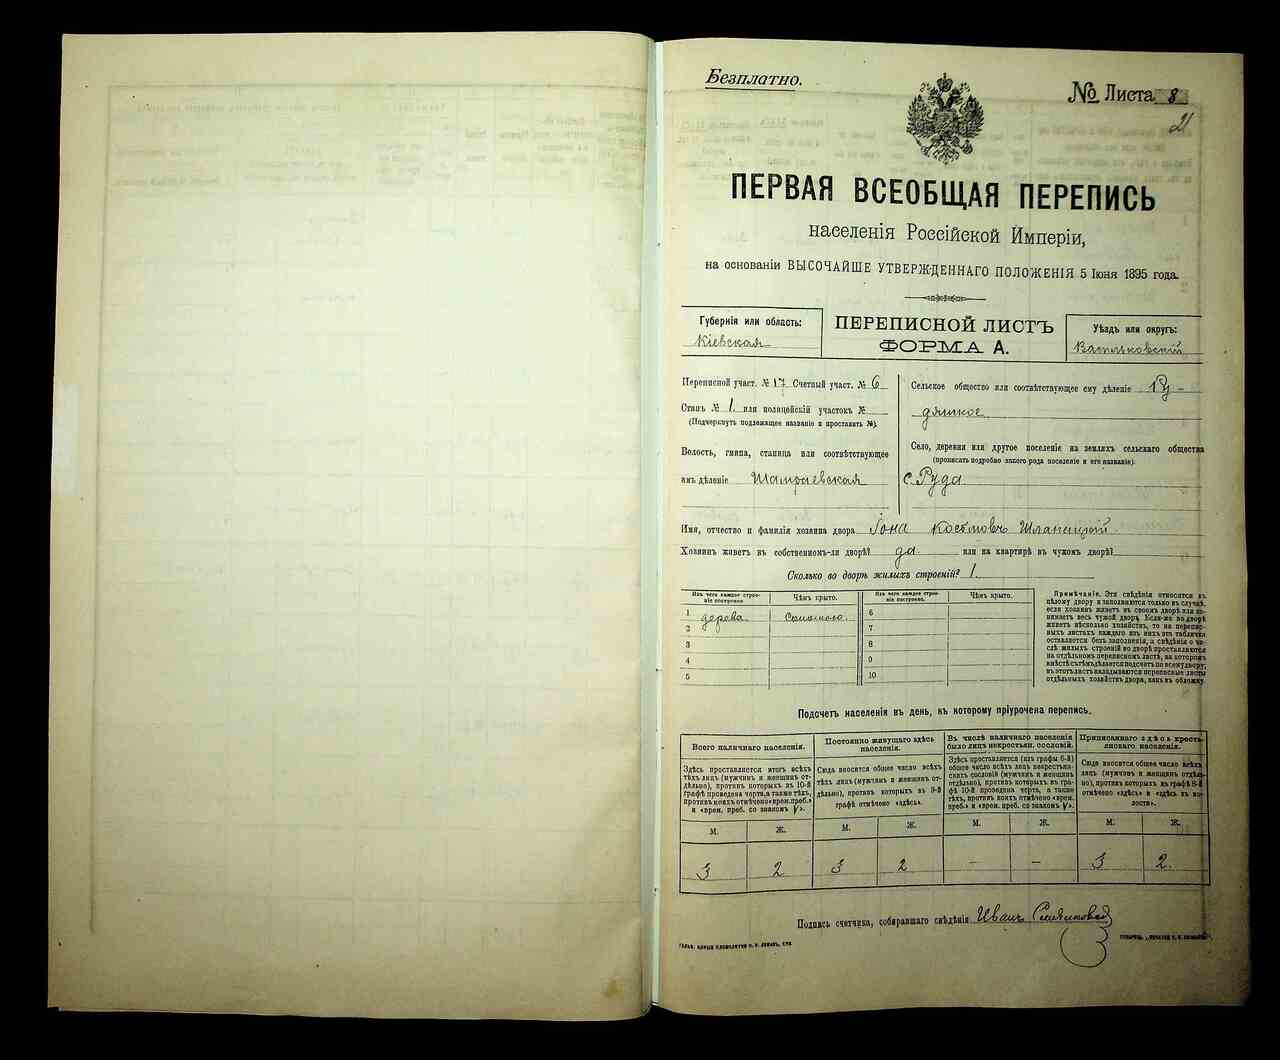 Безплатно.
№ Листа 8
21
ПЕРВАЯ ВСЕОБЩАЯ ПЕРЕПИСЬ
населенія Россійской Имперіи,
на основаніи ВЫСОЧАЙШЕ УТВЕРЖДЕННАГО ПОЛОЖЕНІЯ 5 Іюня 1895 года.
Губернія или область:
Кіевская
ПЕРЕПИСНОЙ ЛИСТЪ
ФОРМА А.
Уѣздъ или округъ:
Васильковскій
Переписной участ. № 17 Счетный участ. № 6
Станъ № 1. или полицейскій участокъ №
(Подчеркнуть подлежащее названіе и проставить №).
Волость, гмина, станица или соотвѣтствующее
имъ дѣленіе Шамраевская
Сельское общество или соотвѣтствующее ему дѣленіе Ру-
дянское
Село, деревня или другое поселеніе на земляхъ сельскаго общества
(прописать подробно какого рода поселеніе и его названіе).
с. Руда
Имя, отчество и фамилія хозяина двора Іона
Хозяинъ живетъ въ собственномъ-ли дворѣ? да или на квартирѣ въ чужомъ дворѣ?
Сколько во дворѣ жилыхъ строеній? 1.
Изъ чего каждое строе-
ніе построено
Чѣмъ крыто.
Изъ чего каждое строе-
ніе построено.
Чѣмъ крыто.
1 дерева Соломою.
2
3
4
5
6
7
8
9
10
Примѣчаніе. Эти свѣдѣнія относятся къ
цѣлому двору и заполняются только въ случаѣ,
если хозяинъ живетъ въ своемъ дворѣ или за-
нимаетъ весь чужой дворъ. Если-же во дворѣ
живетъ нѣсколько хозяйствъ, то на перепис-
ныхъ листахъ каждаго изъ нихъ эта табличка
оставляется безъ заполненія, а свѣдѣнія о чи-
слѣ жилыхъ строеній во дворѣ проставляются
на отдѣльномъ переписномъ листѣ, на которомъ
вмѣстѣ съ тѣмъ дѣлается подсчетъ по всему двору;
въ этотъ листъ вкладываются переписные листы
отдѣльныхъ хозяйствъ двора, какъ въ обложку.
Подсчетъ населенія въ день, къ которому пріурочена перепись.
Всего наличнаго населенія.
Здѣсь проставляется итогъ всѣхъ
тѣхъ лицъ (мужчинъ и женщинъ от-
дѣльно), противъ которыхъ въ 10-й
графѣ проведена черта, а также тѣхъ,
противъ коихъ отмѣчено «врем. преб.»
и «врем. преб. со знакомъ V».
Постоянно живущаго здѣсь
населенія.
Сюда вносится общее число всѣхъ
тѣхъ лицъ (мужчинъ и женщинъ от-
дѣльно), противъ которыхъ въ 9-й
графѣ отмѣчено «здѣсь».
Въ числѣ наличнаго населенія
было лицъ некрестьян. сословій.
Здѣсь проставляется (изъ графы 6-й)
общее число всѣхъ лицъ некрестьян-
скихъ сословій (мужчинъ и женщинъ
отдѣльно), противъ которыхъ въ гра-
фѣ 10-й проведена черта, а также
тѣхъ, противъ коихъ отмѣчено «врем.
преб.» и «врем. преб. со знакомъ V».
Приписаннаго здѣсь кресть-
янскаго населенія.
Сюда вносится общее число всѣхъ
лицъ (мужчинъ и женщинъ отдѣль-
но), противъ которыхъ въ графѣ 8-й
отмѣчено «здѣсь» и «здѣсь въ во-
лости».
М. Ж. М. Ж. М. Ж. М. Ж.
3 2 3 2 — — 3 2.
Подпись счетчика, собиравшаго свѣдѣнія Иванъ